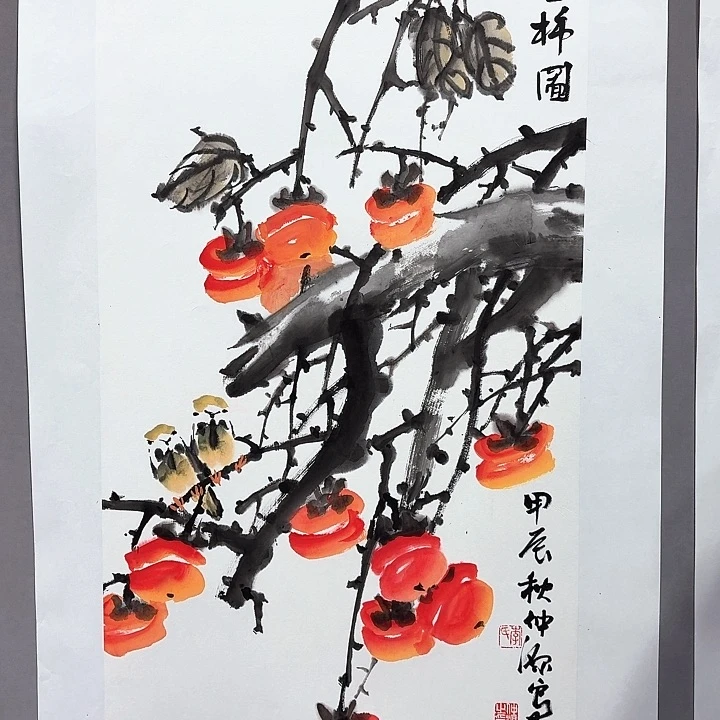 柿圖
甲辰秋仲源寫